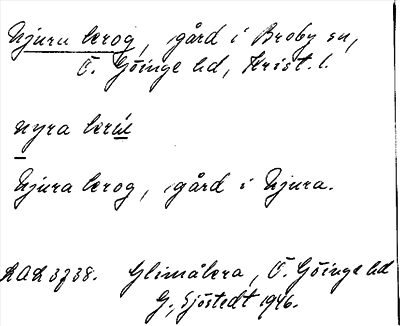 Njura lerog, gård i Broby sn,
Ö. Göinge hd, Krist. l.
nyra
Njura lerog, gård i Njura.
LAL 3738. Glimåkra, Ö. Göinge hd
G. Sjöstedt 1946.